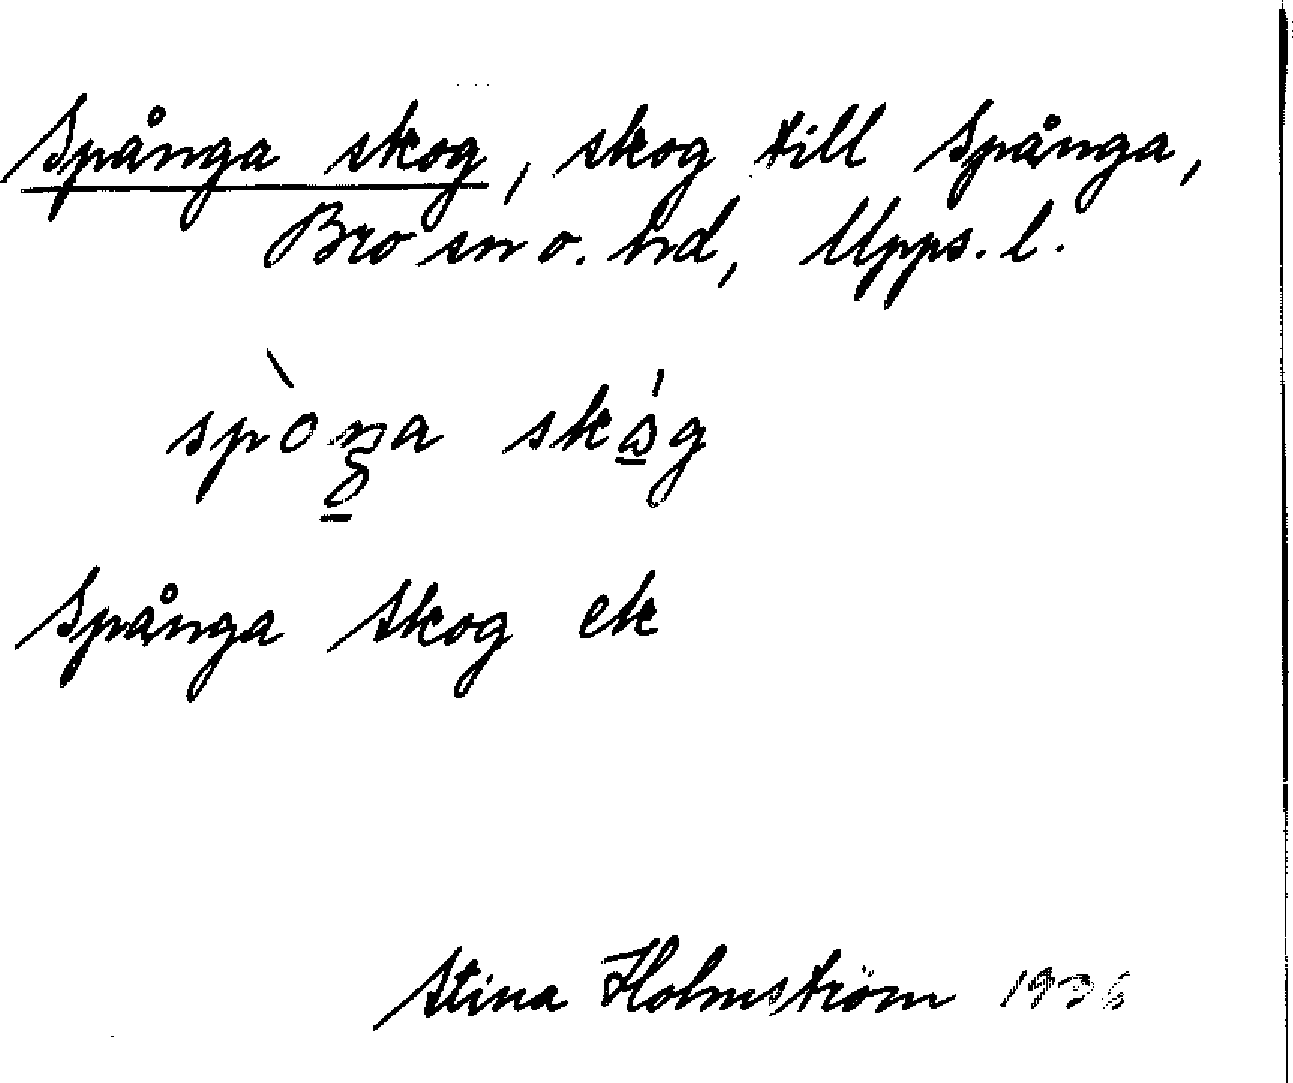 Spånga skog, skog till Spånga,
Bro sn o. hd, Upps. l.
Spånga Skog ek
Stina Holmström 1936